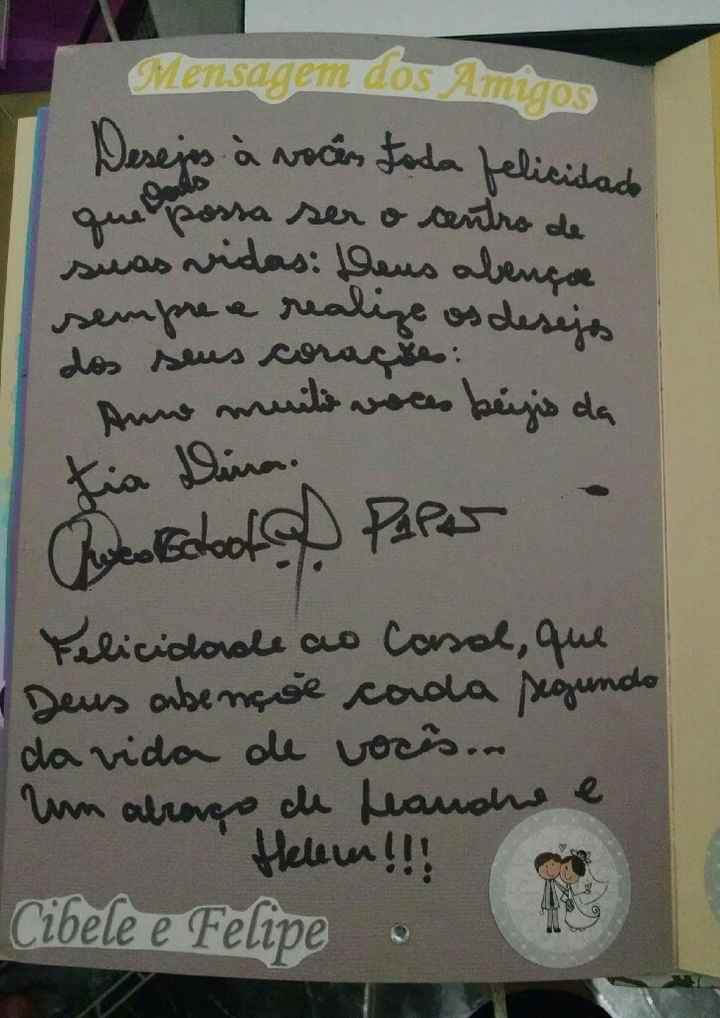 Mensagem dos Amigos
Desejos à vocês toda felicidade
que Deus possa ser o centro de
suas vidas: Deus abençoe
sempre e realize os desejos
dos seus corações:
Amo muito voces beijo da
tia Dina.
PAPAS
Felicidade ao Casal, que
Deus abençõe cada segundo
da vida de vocês...
Um abraço de Leandro e
Helem!!!
Cibele e Felipe